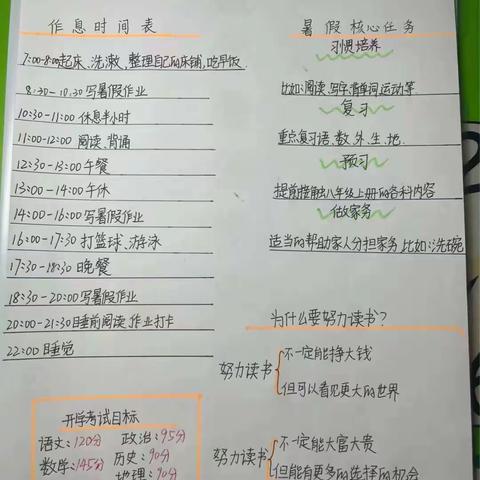 作息时间表
7:00-8:00起床、洗漱、整理自己的床铺,吃早饭
8:30-10:30写暑假作业
10:30-11:00休息半小时
11:00-12:00 阅读、背诵
12:30-13:00午餐
13:00-14:00午休
14:00-16:00写暑假作业
16:00-17:30打篮球、游泳
17:30-18:30晚餐
18:30-20:00写暑假作业
20:00-21:30睡前阅读、作业打卡
22:00睡觉
开学考试目标
语文:120分 政治:95分
数学:145分 历史:90分
地理:90分
暑假核心任务
习惯培养
比如:阅读、写字、背单词、运动等
复习
重点复习语、数、外、生、地.
预习
提前接触八年级上册的各科内容
做家务
适当的帮助家人分担家务,比如:洗碗
为什么要努力读书?
努力读书
不一定能挣大钱
但可以看见更大的世界
努力读书
不一定能大富大贵
但能有更多的选择的机会